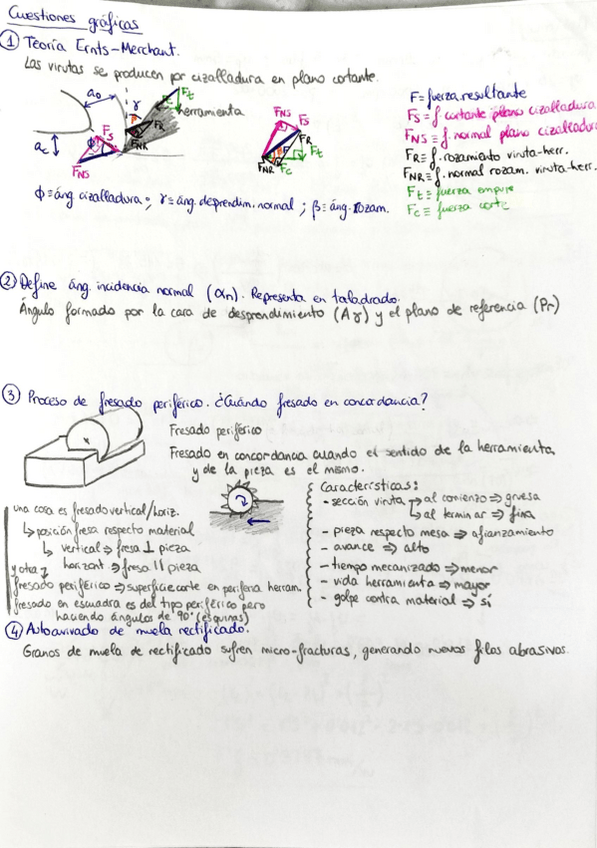 Cuestiones gráficas
① Teoría Ernts-Merchant.
Las virutas se producen por cizalladura en plano cortante.
a₀ γ Ft
herramienta
FR
FNR
ac Fs φ
FNS
FNS Fs
FR
F Ft
FNR Fc
F = fuerza resultante
Fs = f cortante plano cizalladura
FNS = f normal plano cizalladura
FR = f. rozamiento viruta-herr.
FNR = f. normal rozam. viruta-herr.
Ft = fuerza empuje
Fc = fuerza corte
φ = áng cizalladura; γ = áng. deprendim. normal; β = áng. rozam.
② Define áng. incidencia normal (αn). Representa en taladrado.
Ángulo formado por la cara de desprendimiento (Aγ) y el plano de referencia (Pr)
③ Proceso de fresado periférico. ¿Cuándo fresado en concordancia?
Fresado periférico
Fresado en concordancia cuando el sentido de la herramienta
y de la pieza es el mismo.
Características:
- sección viruta → al comienzo ⇒ gruesa
↳ al terminar ⇒ fina
- pieza respecto mesa ⇒ afianzamiento
- avance ⇒ alto
- tiempo mecanizado ⇒ menor
- vida herramienta ⇒ mayor
- golpe contra material ⇒ sí
una cosa es fresado vertical/horiz.
↳ posición fresa respecto material
↳ vertical ⇒ fresa ⊥ pieza
horizont. ⇒ fresa || pieza
y otra
fresado periférico ⇒ superficie corte en periferia herram.
fresado en escuadra es del tipo periférico pero
haciendo ángulos de 90° (esquinas)
④ Autoavivado de muela rectificado.
Granos de muela de rectificado sufren micro-fracturas, generando nuevos filos abrasivos.